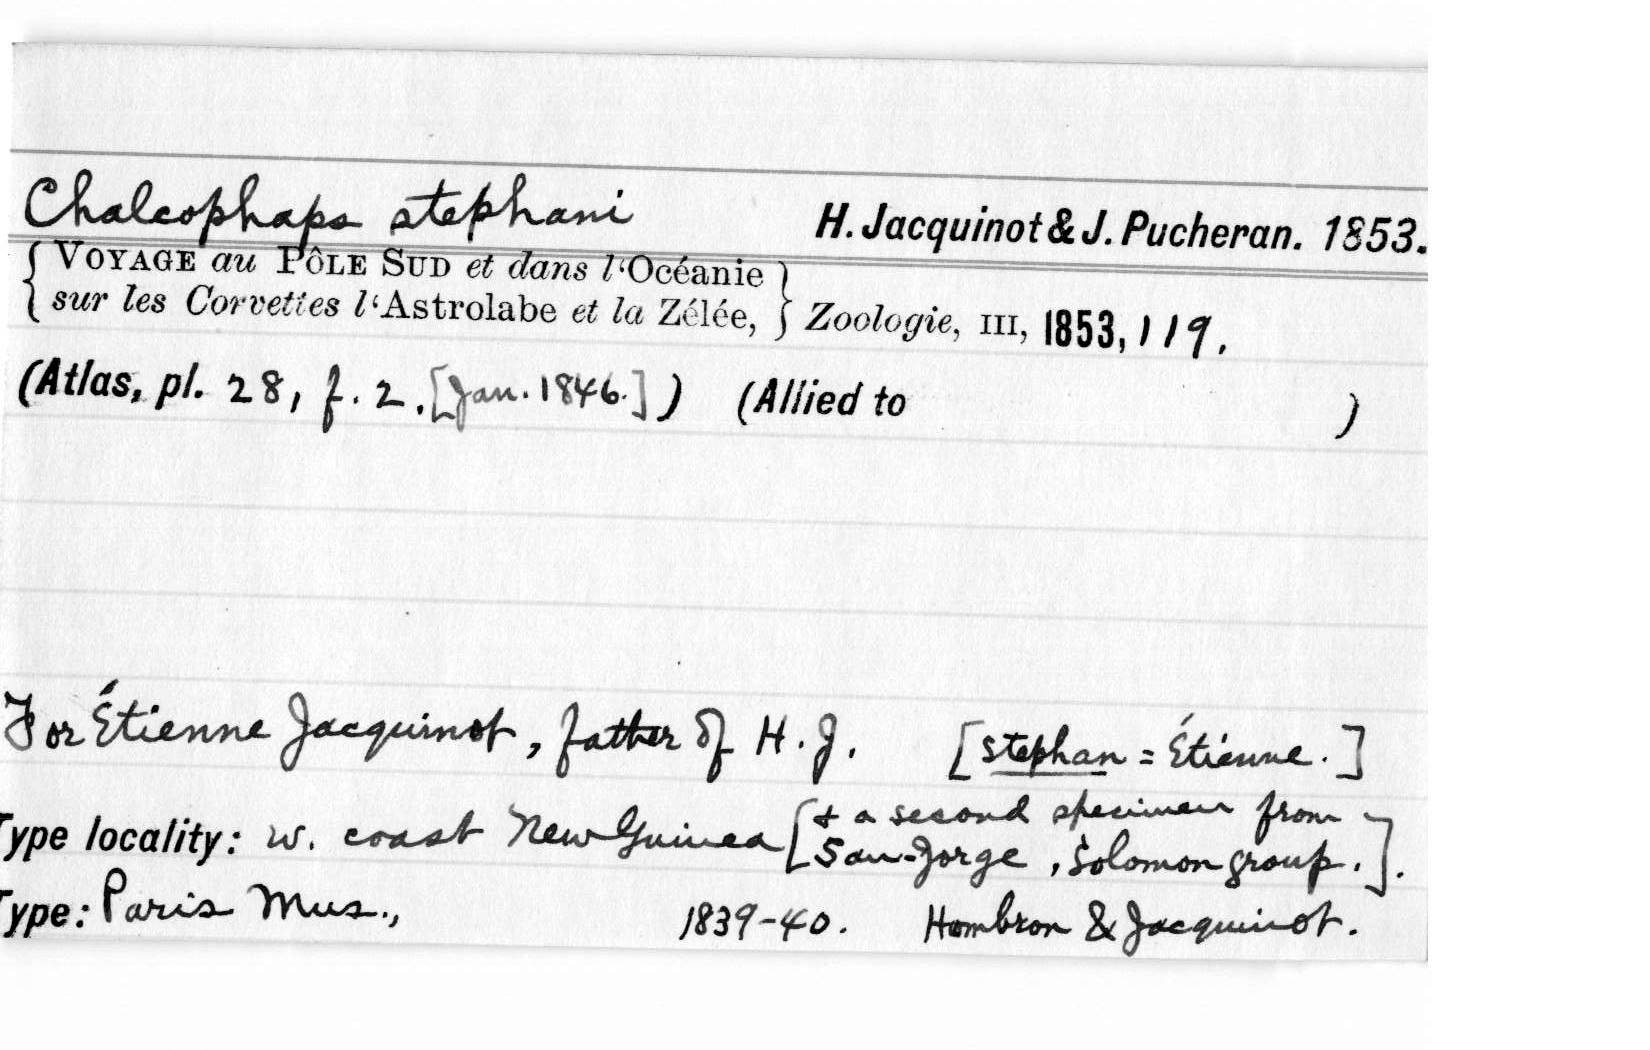 Chalcophaps stephani H. Jacquinot & J. Pucheran. 1853.
{ VOYAGE au PÔLE SUD et dans l‘Océanie }
{ sur les Corvettes l‘Astrolabe et la Zélée, } Zoologie, III, 1853, 119.
(Atlas, pl. 28, f. 2. [Jan. 1846.] ) (Allied to )
For Étienne Jacquinot, father of H. J. [stephan = Étienne.]
Type locality: w. coast New Guinea [+ a second specimen from
San-Jorge, Solomon group.].
Type: Paris Mus., 1839-40. Hombron & Jacquinot.